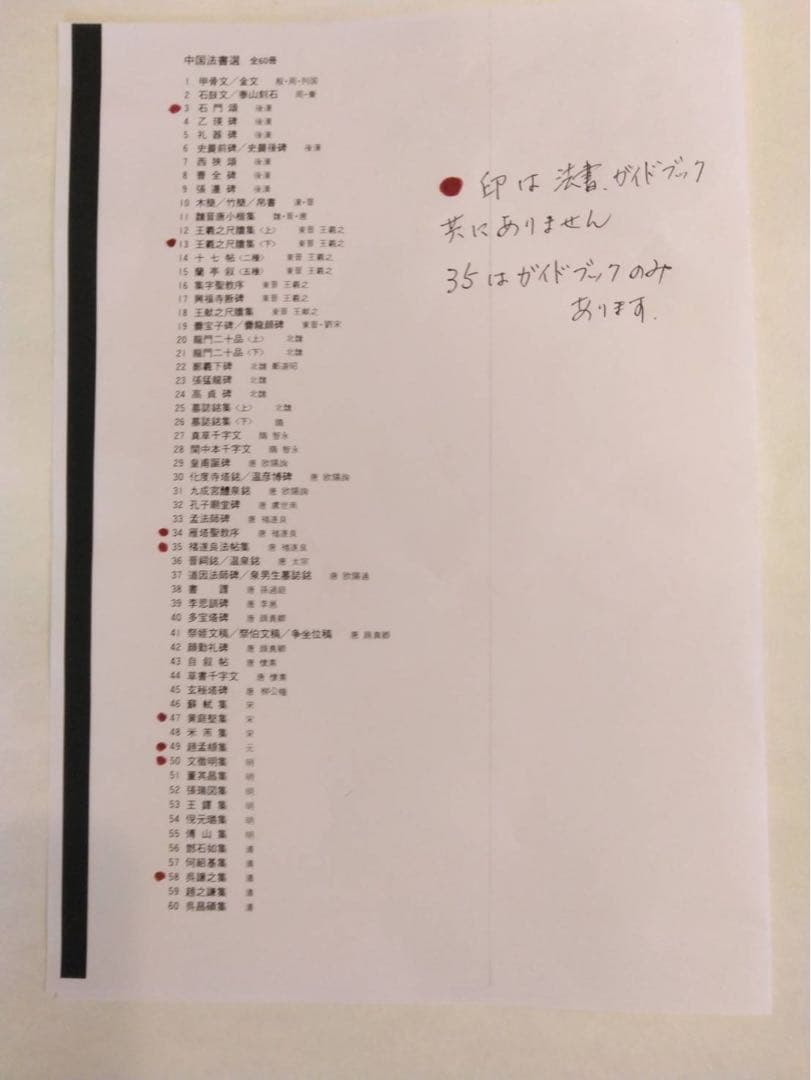 中国法書選 全60冊
1 甲骨文／金文 殷・周・列国
2 石鼓文／泰山刻石 周・秦
3 石門頌 後漢
4 乙瑛碑 後漢
5 礼器碑 後漢
6 史晨前碑／史晨後碑 後漢
7 西狭頌 後漢
8 曹全碑 後漢
9 張遷碑 後漢
10 木簡／竹簡／帛書 漢・晋
11 魏晋唐小楷集 魏・晋・唐
12 王羲之尺牘集〈上〉 東晋 王羲之
13 王羲之尺牘集〈下〉 東晋 王羲之
14 十七帖〈二種〉 東晋 王羲之
15 蘭亭叙〈五種〉 東晋 王羲之
16 集字聖教序 東晋 王羲之
17 興福寺断碑 東晋 王羲之
18 王献之尺牘集 東晋 王献之
19 爨宝子碑／爨龍顔碑 東晋・劉宋
20 龍門二十品〈上〉 北魏
21 龍門二十品〈下〉 北魏
22 鄭羲下碑 北魏 鄭道昭
23 張猛龍碑 北魏
24 高貞碑 北魏
25 墓誌銘集〈上〉 北魏
26 墓誌銘集〈下〉 隋
27 真草千字文 隋 智永
28 関中本千字文 隋 智永
29 皇甫誕碑 唐 欧陽詢
30 化度寺塔銘／温彦博碑 唐 欧陽詢
31 九成宮醴泉銘 唐 欧陽詢
32 孔子廟堂碑 唐 虞世南
33 孟法師碑 唐 褚遂良
34 雁塔聖教序 唐 褚遂良
35 褚遂良法帖集 唐 褚遂良
36 晋祠銘／温泉銘 唐 太宗
37 道因法師碑／泉男生墓誌銘 唐 欧陽通
38 書譜 唐 孫過庭
39 李思訓碑 唐 李邕
40 多宝塔碑 唐 顔真卿
41 祭姪文稿／祭伯文稿／争坐位稿 唐 顔真卿
42 顔勤礼碑 唐 顔真卿
43 自叙帖 唐 懐素
44 草書千字文 唐 懐素
45 玄秘塔碑 唐 柳公権
46 蘇軾集 宋
47 黄庭堅集 宋
48 米芾集 宋
49 趙孟頫集 元
50 文徴明集 明
51 董其昌集 明
52 張瑞図集 明
53 王鐸集 明
54 倪元璐集 明
55 傅山集 明
56 鄧石如集 清
57 何紹基集 清
58 呉譲之集 清
59 趙之謙集 清
60 呉昌碩集 清
印は法書、ガイドブック
共にありません
35はガイドブックのみ
あります.